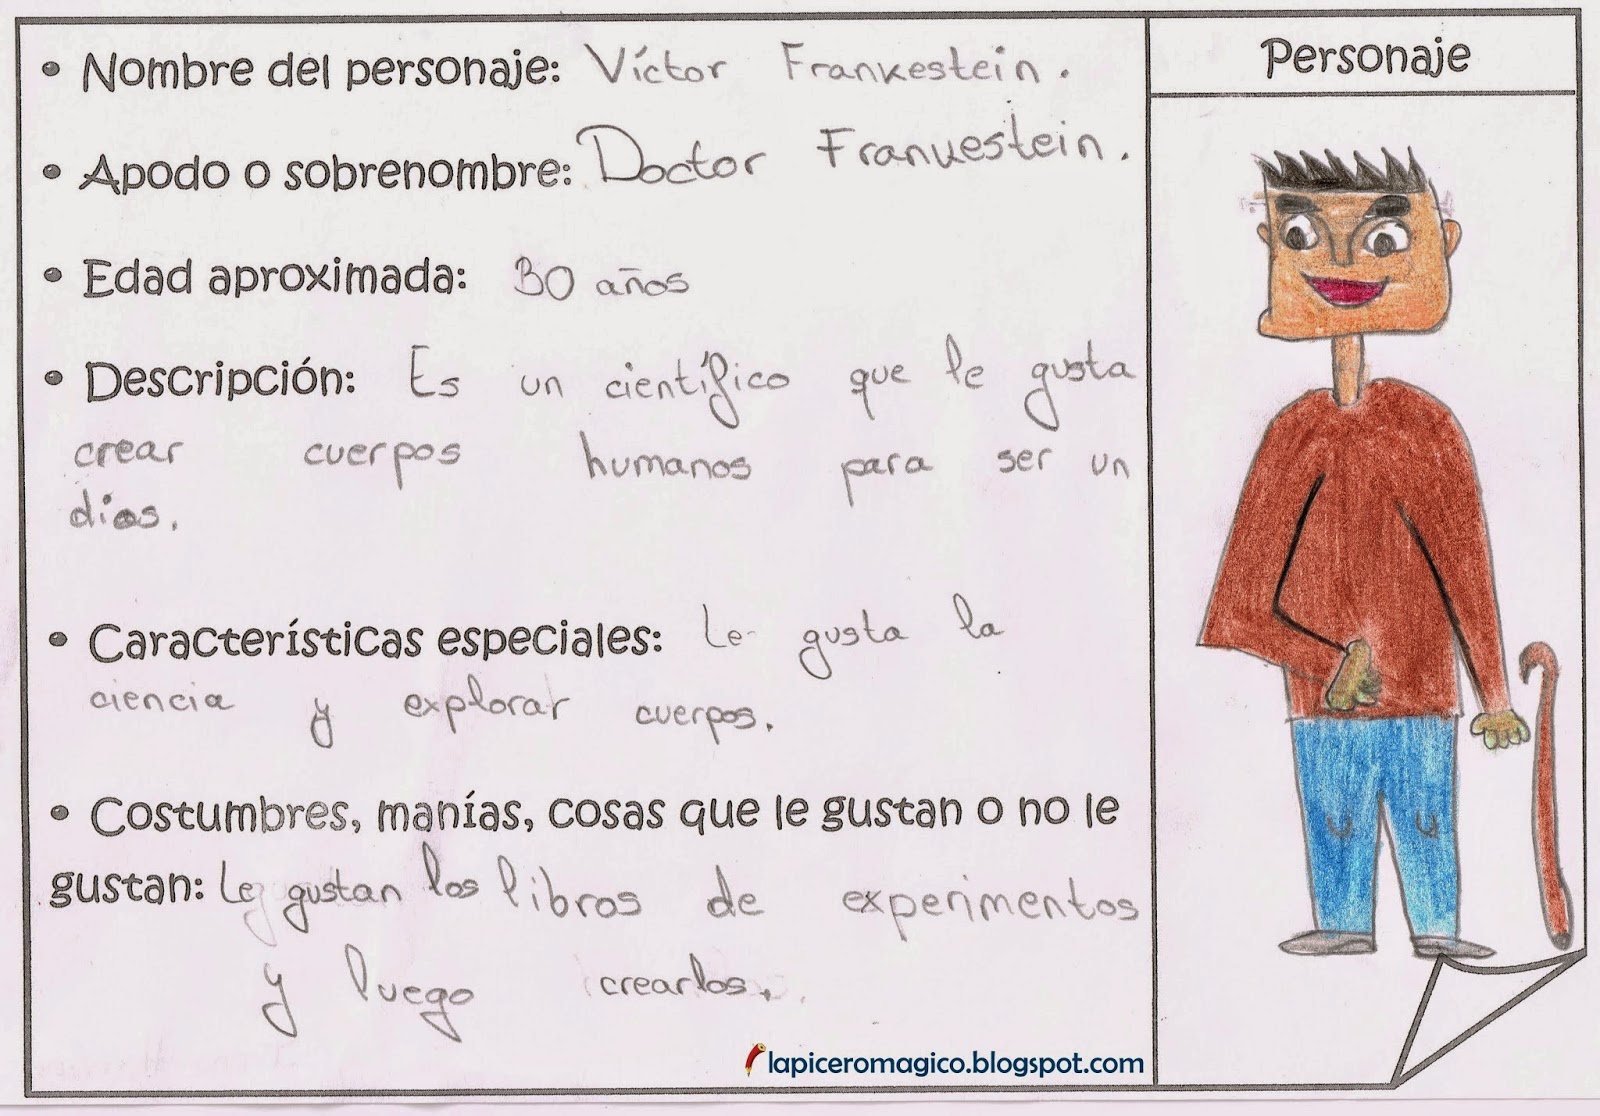 • Nombre del personaje: Víctor Frankestein.
Personaje
• Apodo o sobrenombre: Doctor Frankestein.
• Edad aproximada: 30 años
• Descripción: Es un científico que le gusta
crear cuerpos humanos para ser un
dios.
• Características especiales: Le gusta la
ciencia y explorar cuerpos.
• Costumbres, manías, cosas que le gustan o no le
gustan: Le gustan los libros de experimentos
y luego crearlos.
lapiceromagico.blogspot.com